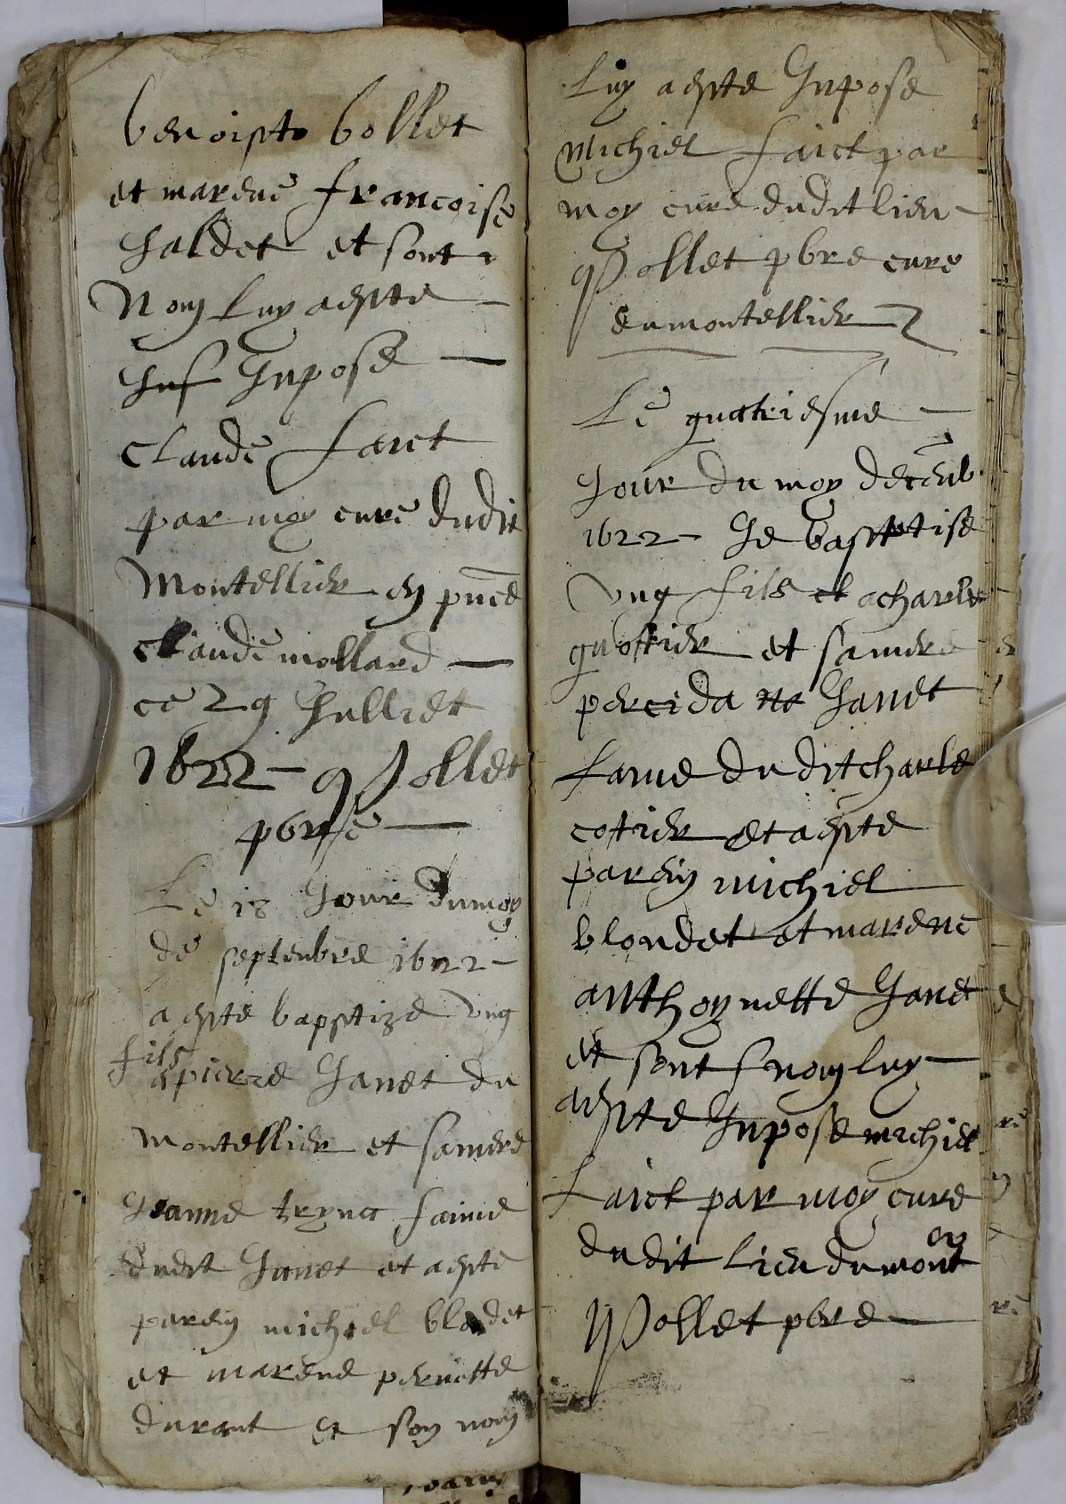 benoispto bollet
et marene francoise
Jaldet et sont
Nom luy a espte
Inpose
claude faict
par moy cure dudit
Montellier en pñce
claude mollard
ce 29 Julliet
1622 Pollet
pbre
Le 18 Jour du moy
de septenbre 1622
a espte bapstize ung
fils
a pierre Janet du
Montellier et samere
Jeanne fame
dudit Janet et a espte
parein michiel blodet
et marene pernette
durant et son nom
Luy a espte Inpose
Michiel faict par
moy cure dudit lieu
Pollet pbre cure
du montellier
Le quatriesme
Jour du moy decenb
1622 Je bapstise
ung fils et a charle
quottier et samere
Janet
fame du dit charle
cotier et a espte
parein michiel
blondet et marene
anthoynette Janet
et sont nom luy
aespte Inpose michiel
faict par moy cure
du dit lieu du mont
Pollet pbre